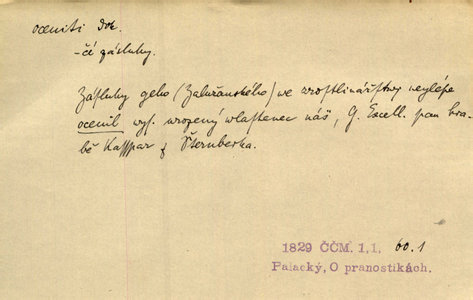 oceniti dok.
-čí zásluhy.
Zásluhy geho (Zalužanského) we zrostlinářstwj neylépe
ocenil wys. urozený wlastenec náš, G. Excell. pan hra-
bě Kašspar z Šternberka.
1829 ČČM. 1,1. 60.1
Palacký, O pranostikách.